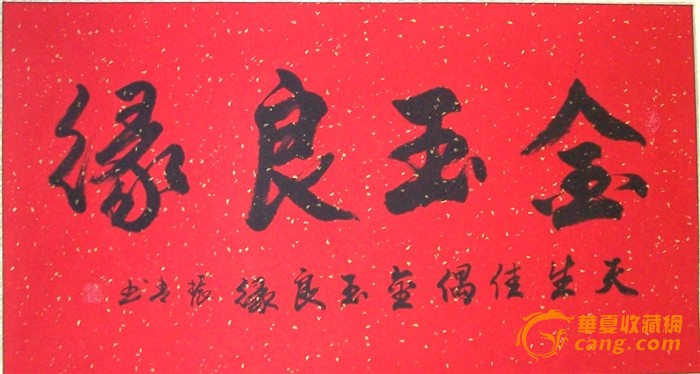 金玉良緣
天生佳偶金玉良緣 振 书
華夏收藏網
cang.com